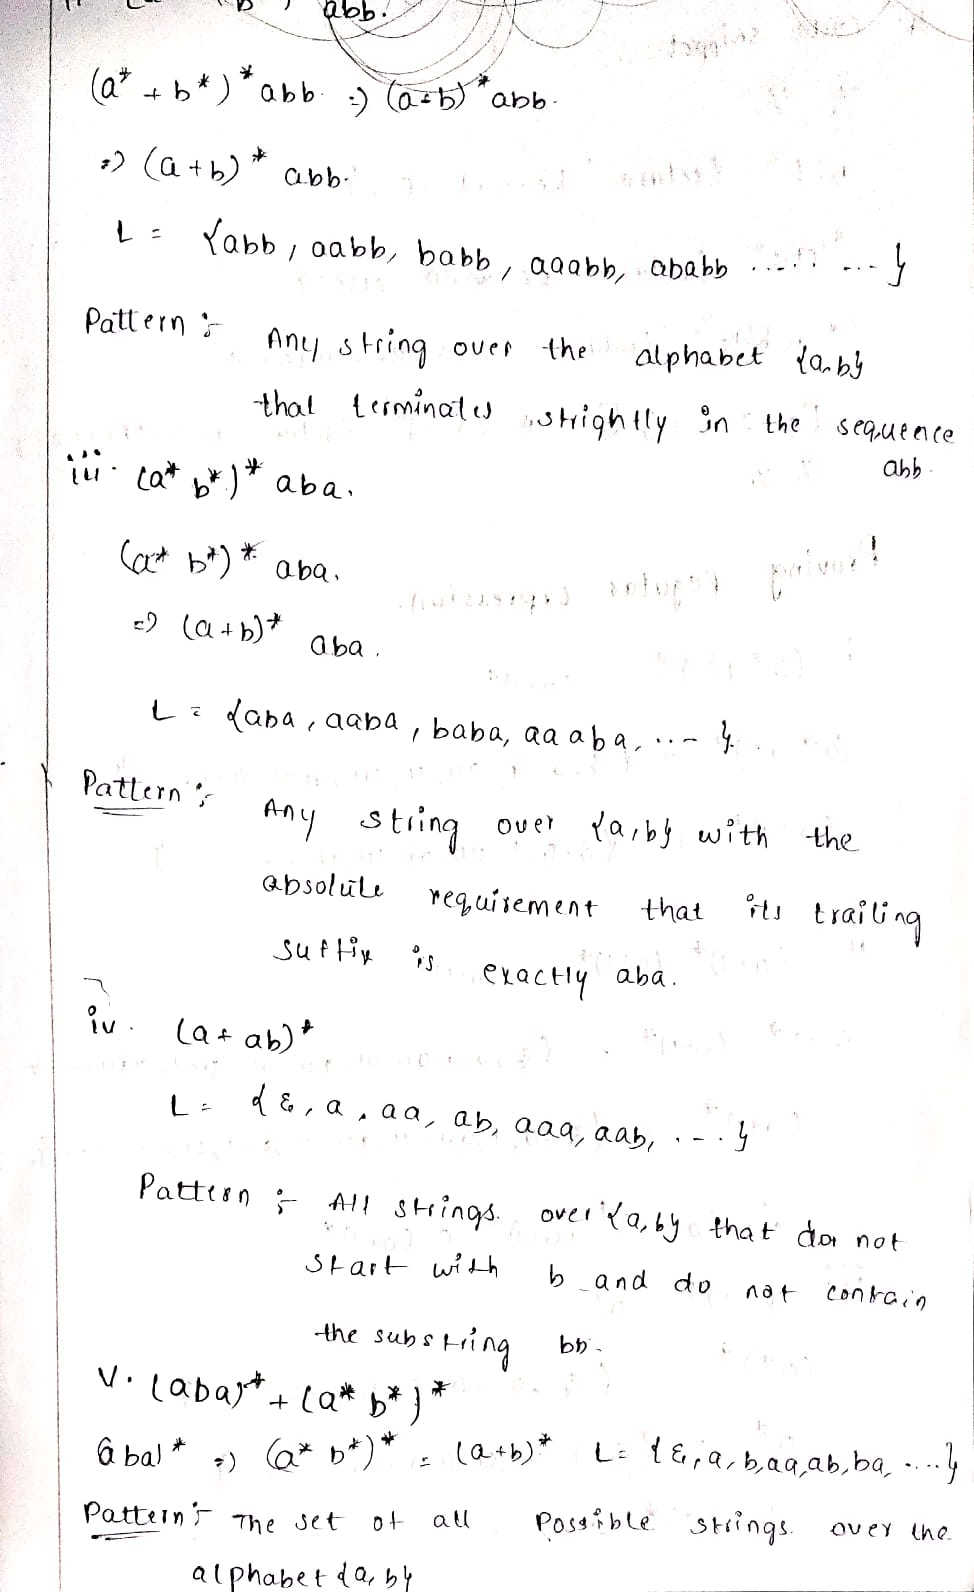 abb.
(a* + b*)* abb. => (a+b)* abb.
=> (a+b)* abb.
L = {abb, aabb, babb, aaabb, ababb ........ ...}
Pattern :- Any string over the alphabet {a,b}
that terminates strightly in the sequence
abb.
iii. (a* b*)* aba.
(a* b*)* aba.
=> (a+b)* aba.
L = {aba, aaba, baba, aaaba, ..- }.
Pattern :- Any string over {a,b} with the
absolute requirement that its trailing
suffix is exactly aba.
iv. (a+ab)*
L = {ε, a, aa, ab, aaa, aab, .-..}
Pattern :- All strings. over {a,b} that do not
start with b and do not contain
the substring bb.
V. (aba)* + (a* b*)*
(aba)* => (a* b*)* = (a+b)* L = {ε, a, b, aa, ab, ba, .....}
Pattern :- The set of all Possible strings. over the
alphabet {a, b}